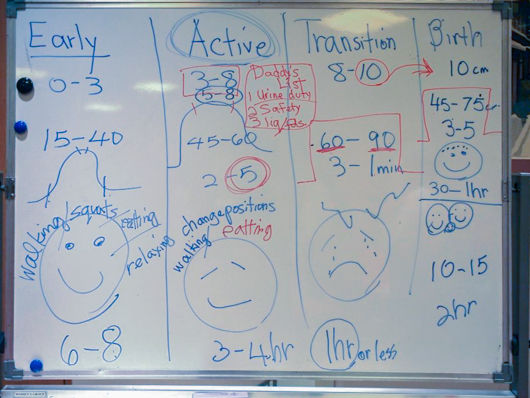 Early
0-3
15-40
walking/squats
eatting
relaxing
6-8
Active
3-8
5-8
Daddy's
List
1 Urine duty
2 Safety
3 liq/fds
45-60
2-5
change positions
walking/
eatting
3-4hr
Transition
8-10
60-90
3-1min
1hr or less
Birth
10cm
45-75
3-5
30-1hr
10-15
2hr